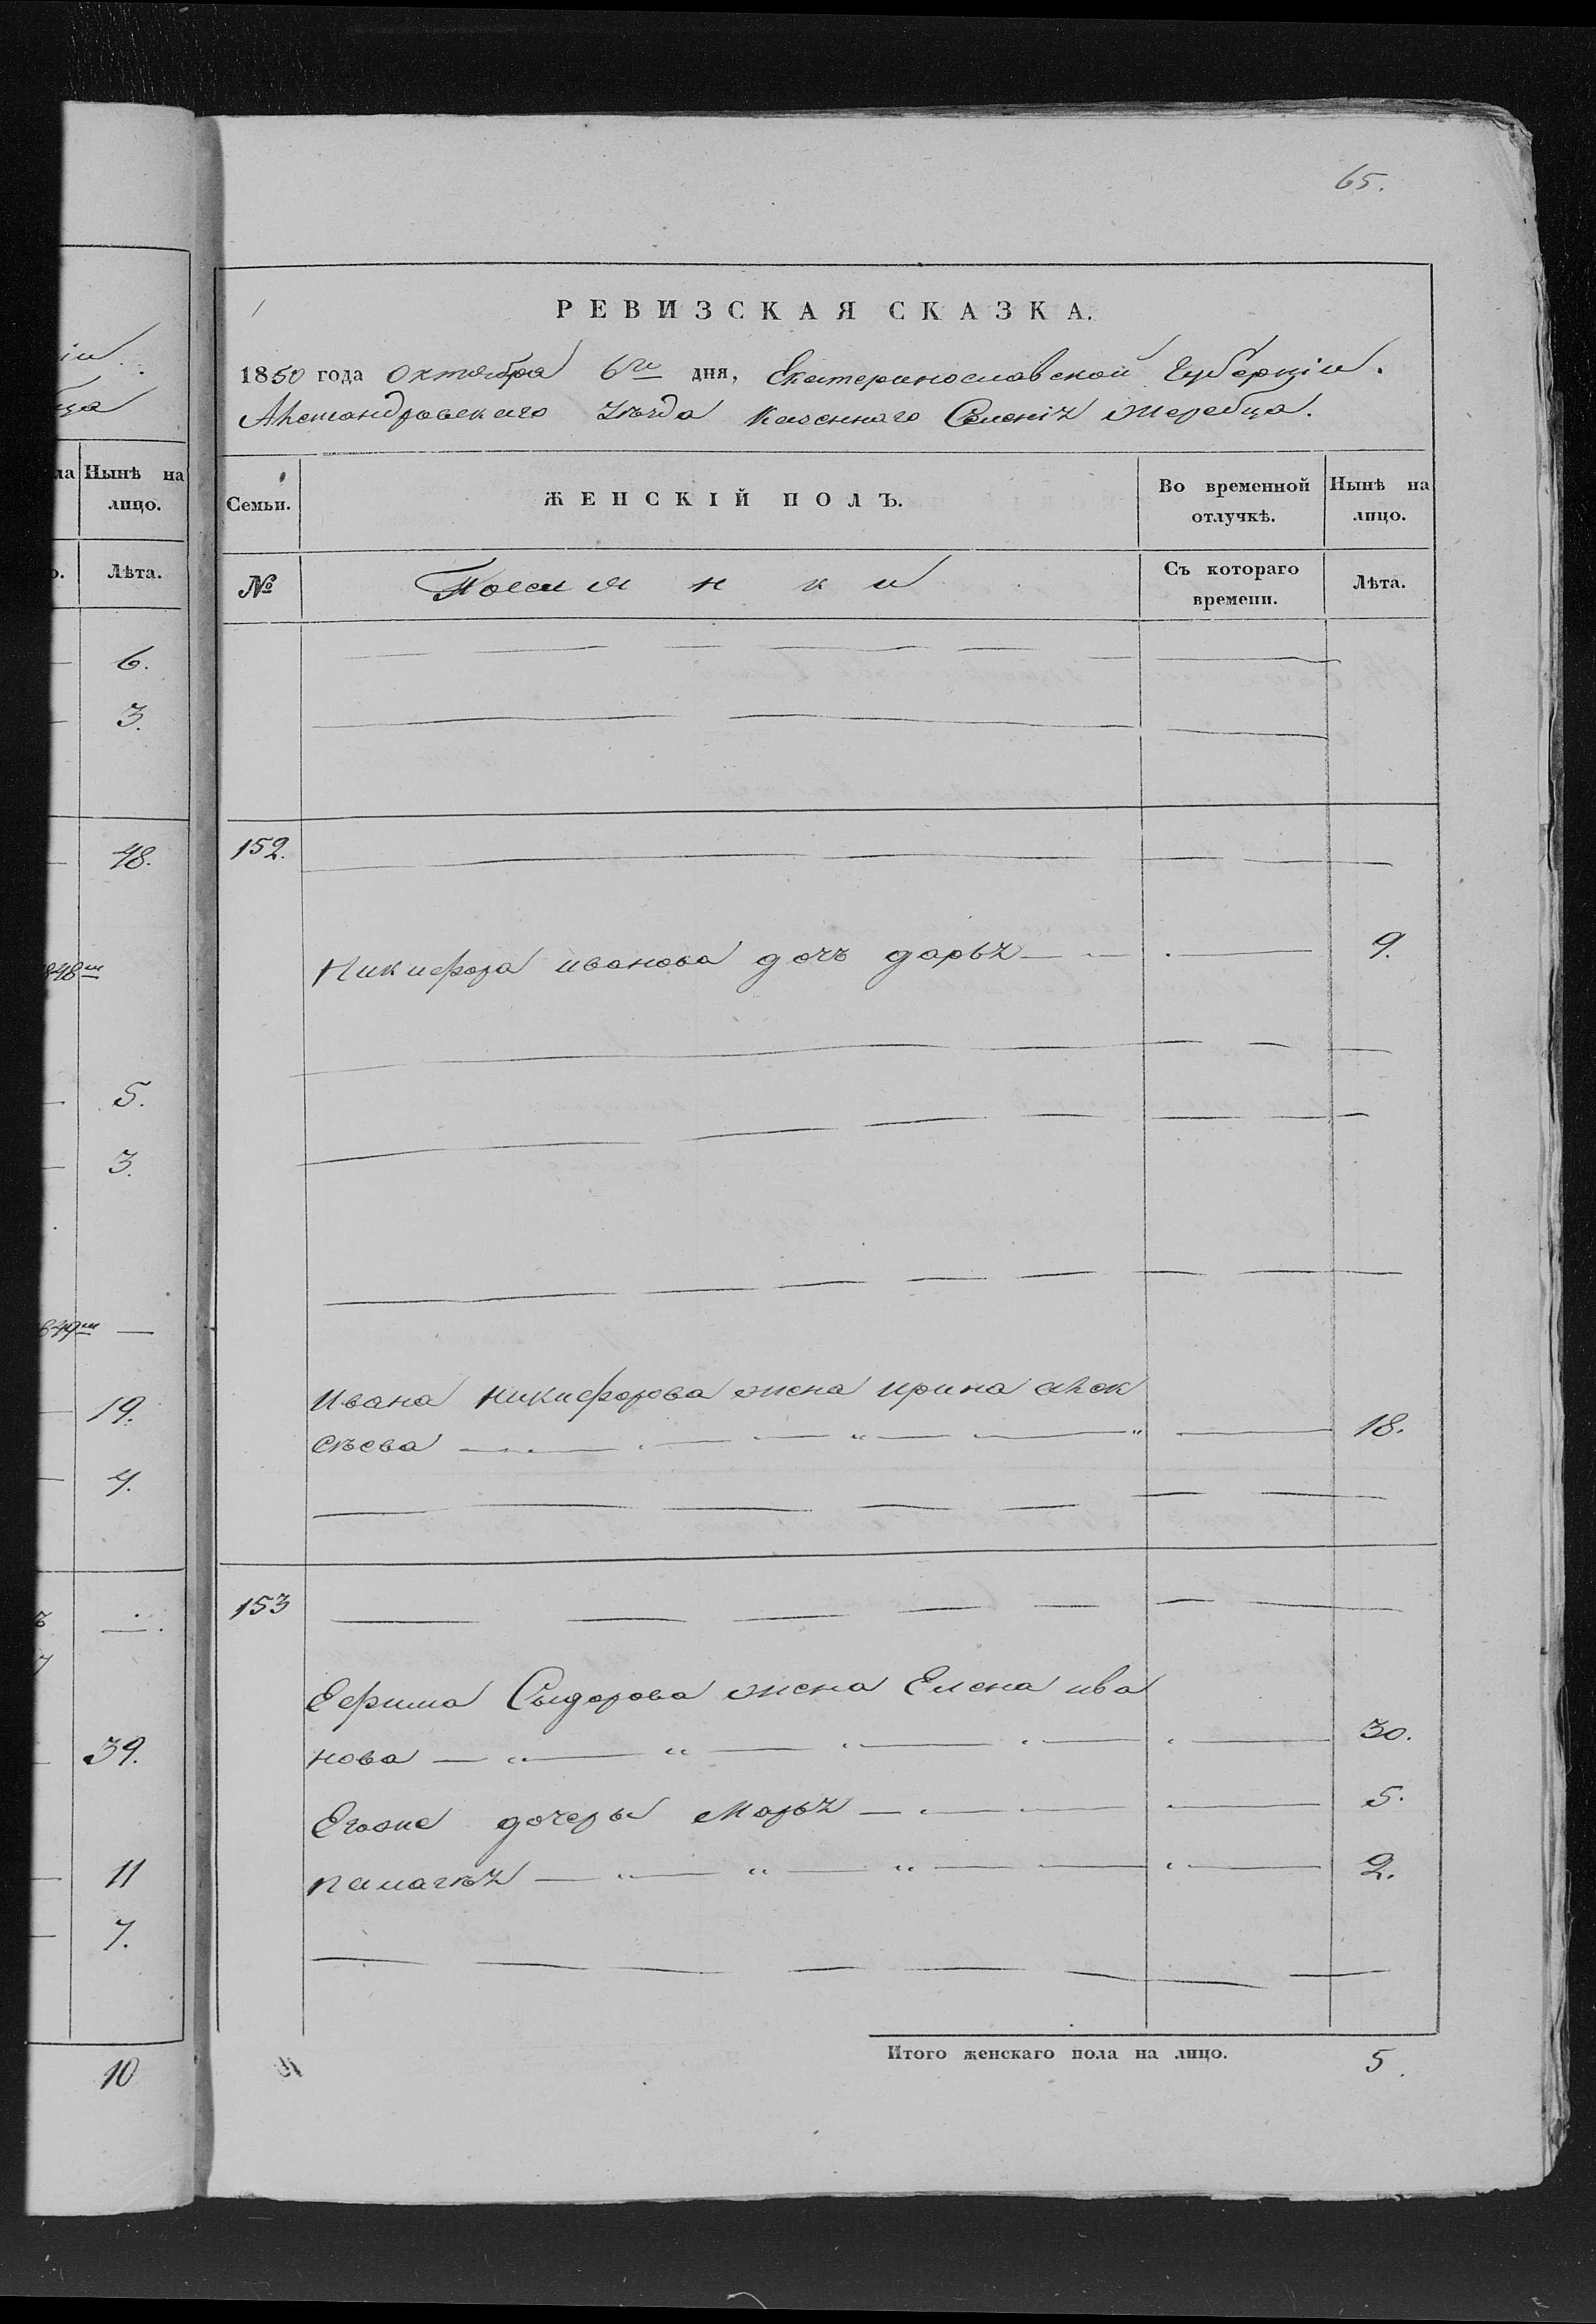 65.
РЕВИЗСКАЯ СКАЗКА.
1850 года Октября 6го дня, Екатеринославской Губерніи.
Александровскаго Уѣзда Казеннаго Селенія Жеребца.
Семьи.
ЖЕНСКІЙ ПОЛЪ.
Во временной отлучкѣ.
Нынѣ на лицо.
№
Поселянки
Съ котораго времени.
Лѣта.
152.
Никифора иванова дочь дарья 9.
Ивана никифорова жена ирина алек
сѣева 18.
153
Ефима Сыдорова жена Елена ива
нова 30.
Егоже дочеры Марья 5.
2.
Итого женскаго пола на лицо. 5.
іи
ца
ла
Нынѣ на
лицо.
о.
Лѣта.
6.
3.
48.
848м
5.
3.
849м
19.
4.
39.
11
7.
10